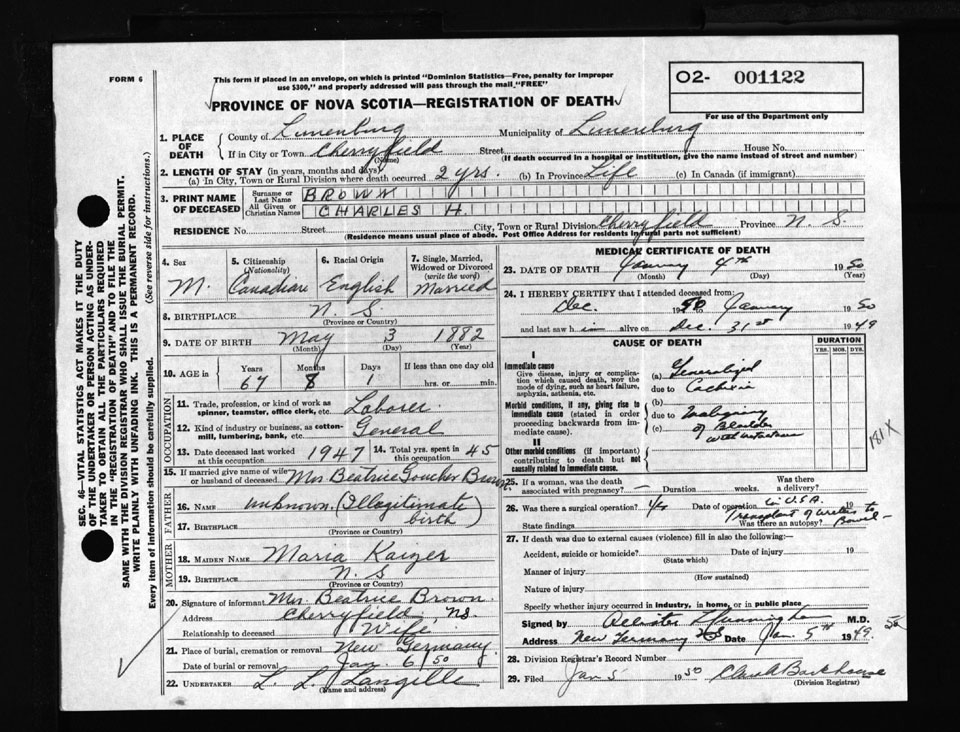 FORM 6
This form if placed in an envelope, on which is printed "Dominion Statistics—Free, penalty for improper
use $300," and properly addressed will pass through the mail, "FREE"
O2- 001122
For use of the Department only
PROVINCE OF NOVA SCOTIA—REGISTRATION OF DEATH
1. PLACE OF DEATH
County of Lunenburg Municipality of Lunenburg
If in City or Town Cherryfield Street House No.
(Name) (If death occurred in a hospital or institution, give the name instead of street and number)
2. LENGTH OF STAY (in years, months and days)
(a) In City, Town or Rural Division where death occurred 2 yrs. (b) In Province Life (c) In Canada (if immigrant)
3. PRINT NAME OF DECEASED
Surname or Last Name BROWN
All Given or Christian Names CHARLES H.
RESIDENCE No. Street City, Town or Rural Division Cherryfield Province N. S.
(Residence means usual place of abode. Post Office Address for residents of rural parts not sufficient)
4. Sex M.
5. Citizenship (Nationality) Canadian
6. Racial Origin English
7. Single, Married, Widowed or Divorced (write the word) Married
8. BIRTHPLACE N. S.
(Province or Country)
9. DATE OF BIRTH May 3 1882
(Month) (Day) (Year)
10. AGE in Years Months Days If less than one day old
67 8 1 hrs. or min.
OCCUPATION
11. Trade, profession, or kind of work as spinner, teamster, office clerk, etc. Laborer.
12. Kind of industry or business, as cotton-mill, lumbering, bank, etc. General
13. Date deceased last worked at this occupation 1947 14. Total yrs. spent in this occupation 45
15. If married give name of wife or husband of deceased Mrs. Beatrice Goucher Brown
FATHER
16. NAME unknown (Illagitimate birth)
17. BIRTHPLACE
(Province or Country)
MOTHER
18. MAIDEN NAME Maria Kaizer
19. BIRTHPLACE N. S
(Province or Country)
20. Signature of informant Mrs. Beatrice Brown.
Address Cherryfield, N.S.
Relationship to deceased Wife
21. Place of burial, cremation or removal New Germany
Date of burial or removal Jan. 6/50
22. UNDERTAKER L. L. Langille
(Name and address)
MEDICAL CERTIFICATE OF DEATH
23. DATE OF DEATH January 4th 1950
(Month) (Day) (Year)
24. I HEREBY CERTIFY that I attended deceased from:
Dec. January 1950
and last saw him alive on Dec. 31st 1949
CAUSE OF DEATH
DURATION
YRS. MOS. DYS.
I
Immediate cause
Give disease, injury or complication which caused death, not the mode of dying, such as heart failure, asphyxia, asthenia, etc.
(a) Generalized
due to
Morbid conditions, if any, giving rise to immediate cause (stated in order proceeding backwards from immediate cause).
(b)
due to
(c) of Bladder
II
Other morbid conditions (if important) contributing to death but not causally related to immediate cause.
181X
25. If a woman, was the death associated with pregnancy? — Duration weeks. Was there a delivery?
26. Was there a surgical operation? Yes Date of operation in U.S.A. 19
State findings Transplant of ureters to Bowel
Was there an autopsy?
27. If death was due to external causes (violence) fill in also the following:
Accident, suicide or homicide? Date of injury 19
(State which)
Manner of injury
(How sustained)
Nature of injury
Specify whether injury occurred in industry, in home, or in public place
Signed by M.D.
Address New Germany NS Date Jan. 5th 1949. 50
28. Division Registrar's Record Number
29. Filed Jan 5 1950
(Division Registrar)
SEC. 46—VITAL STATISTICS ACT MAKES IT THE DUTY
OF THE UNDERTAKER OR PERSON ACTING AS UNDER-
TAKER TO OBTAIN ALL THE PARTICULARS REQUIRED
IN THE "REGISTRATION OF DEATH" AND TO FILE THE
SAME WITH THE DIVISION REGISTRAR WHO SHALL ISSUE THE BURIAL PERMIT.
WRITE PLAINLY WITH UNFADING INK. THIS IS A PERMANENT RECORD.
Every item of information should be carefully supplied. (See reverse side for instructions.)